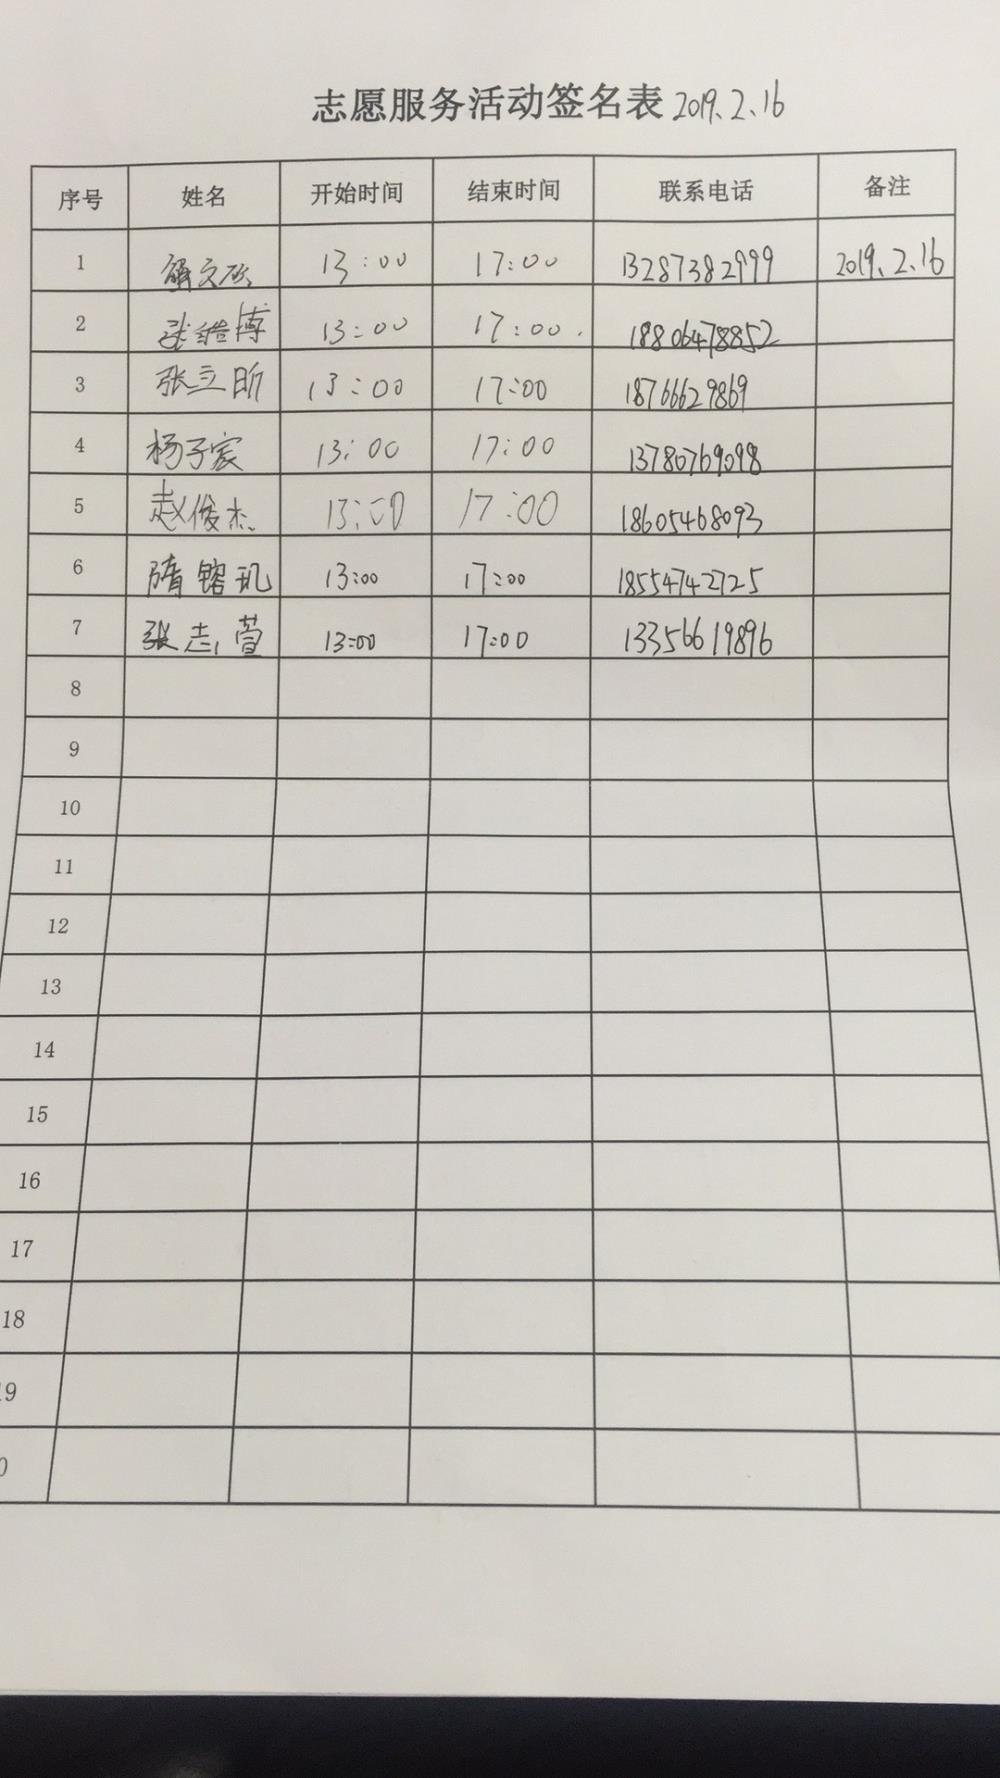 志愿服务活动签名表 2019.2.16
序号 姓名 开始时间 结束时间 联系电话 备注
1 解文 13:00 17:00 13287382999 2019.2.16
2 张锴博 13:00 17:00. 18806478852
3 张立昕 13:00 17:00 18766629869
4 杨子宸 13:00 17:00 13780769098
5 赵俊杰 13:00 17:00 18605468093
6 隋镕玑 13:00 17:00 18554742725
7 张志萱 13:00 17:00 13356619896
8
9
10
11
12
13
14
15
16
17
18
19
0